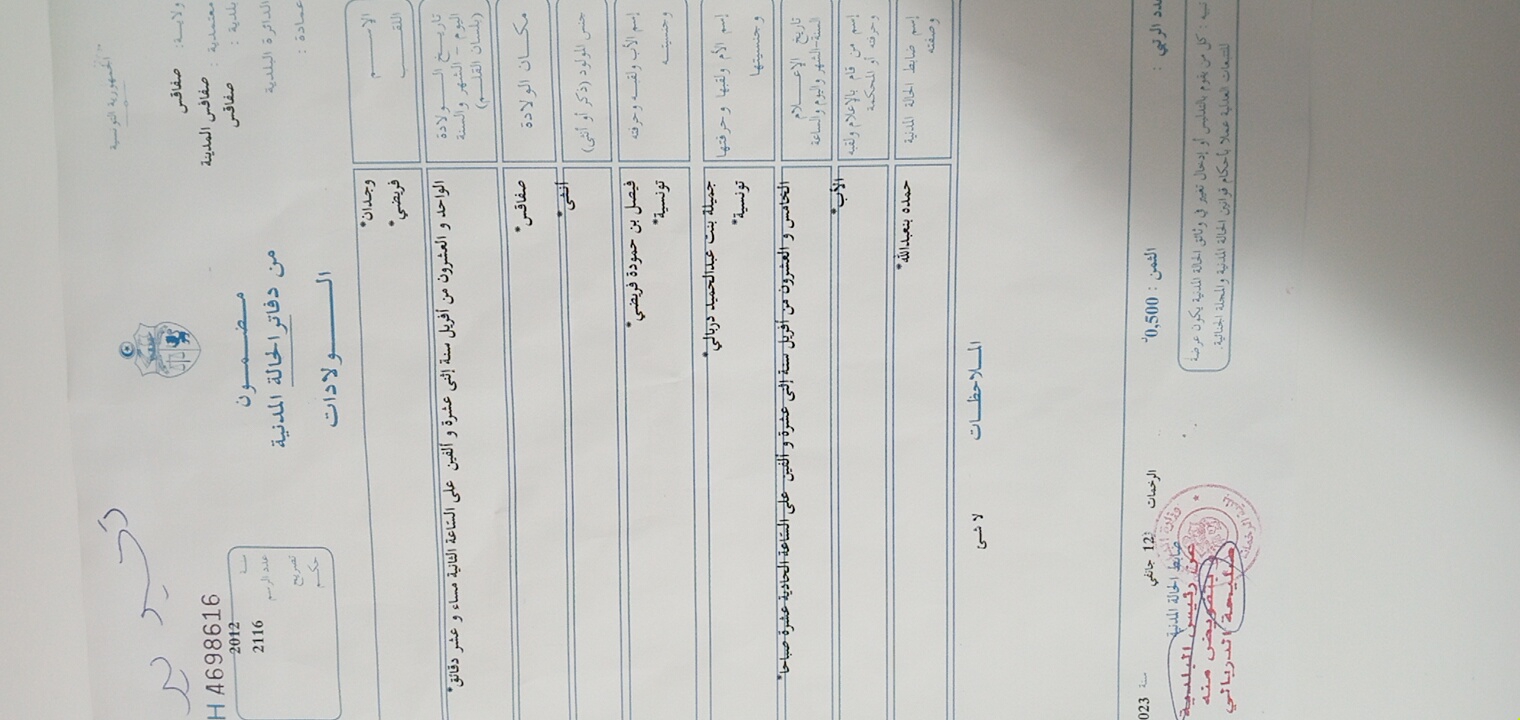 الجمهورية التونسية
ولاية: صفاقس
معتمدية: صفاقس المدينة
بلدية: صفاقس
الدائرة البلدية
عمادة:
مضمون
من دفاتر الحالة المدنية
الولادات
H A698616
سنة 2012
عدد الرسم 2116
تصريح
حكم
الاسم
وجدان*
اللقب
فريضي*
تاريخ الولادة
اليوم - الشهر والسنة
(بلسان القلم)
الواحد و العشرون من أفريل سنة إثني عشرة و ألفين على الساعة الثانية مساء و عشر دقائق*
مكان الولادة
صفاقس*
جنس المولود (ذكر أو أنثى)
أنثى*
إسم الأب ولقبه وحرفته
وجنسيته
فيصل بن حمودة فريضي*
تونسية*
إسم الأم ولقبها وحرفتها
وجنسيتها
جميلة بنت عبدالحميد دربالي*
تونسية*
تاريخ الإعلام
السنة-الشهر واليوم والساعة
الخامس و العشرون من أفريل سنة إثني عشرة و ألفين على الساعة الحادية عشرة صباحا*
إسم من قام بالإعلام ولقبه
وحرفته أو المحكمة
الأب*
إسم ضابط الحالة المدنية
وصفته
حمده بنعبدالله*
الملاحظات
لا شئ
عدد الرتبي :
الثمن : 0,500د
الرخمات 12 جانفي سنة 023
ضابط الحالة المدنية
تنبيه : كل من يقوم بالتدليس أو إدخال تغيير في وثائق الحالة المدنية يكون عرضة
للتتبعات العدلية عملا بأحكام قوانين الحالة المدنية والمجلة الجنائية.
عن رئيس البلدية
وبتفويض منه